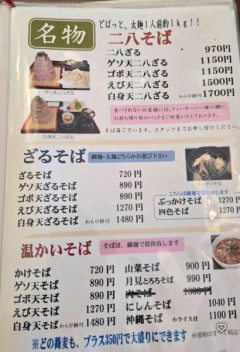 名物
どばっと、太麺1人前約1kg!!
二八そば
二八ざる 970円
ゲソ天二八ざる 1150円
ゴボ天二八ざる 1150円
えび天二八ざる 1500円
白身天二八ざる わらび餅付 1700円
ざるそば
細麺・太麺どちらかお選び下さい
ざるそば 720円
ゲソ天ざるそば 890円
ゴボ天ざるそば 890円
えび天ざるそば 1270円
白身天ざるそば わらび餅付 1480円
こちらは細麺で提供致します
ぶっかけそば 1270円
四色そば 1270円
温かいそば
そばは、細麺で提供致します
かけそば 720円
ゲソ天そば 890円
ゴボ天そば 890円
えび天そば 1270円
白身天そば わらび餅付 1480円
山菜そば 900円
月見とろろそば 990円
にしんそば 1040円
沖縄そば ホライス付 1100円
※どの蕎麦も、プラス350円で大盛りにできます